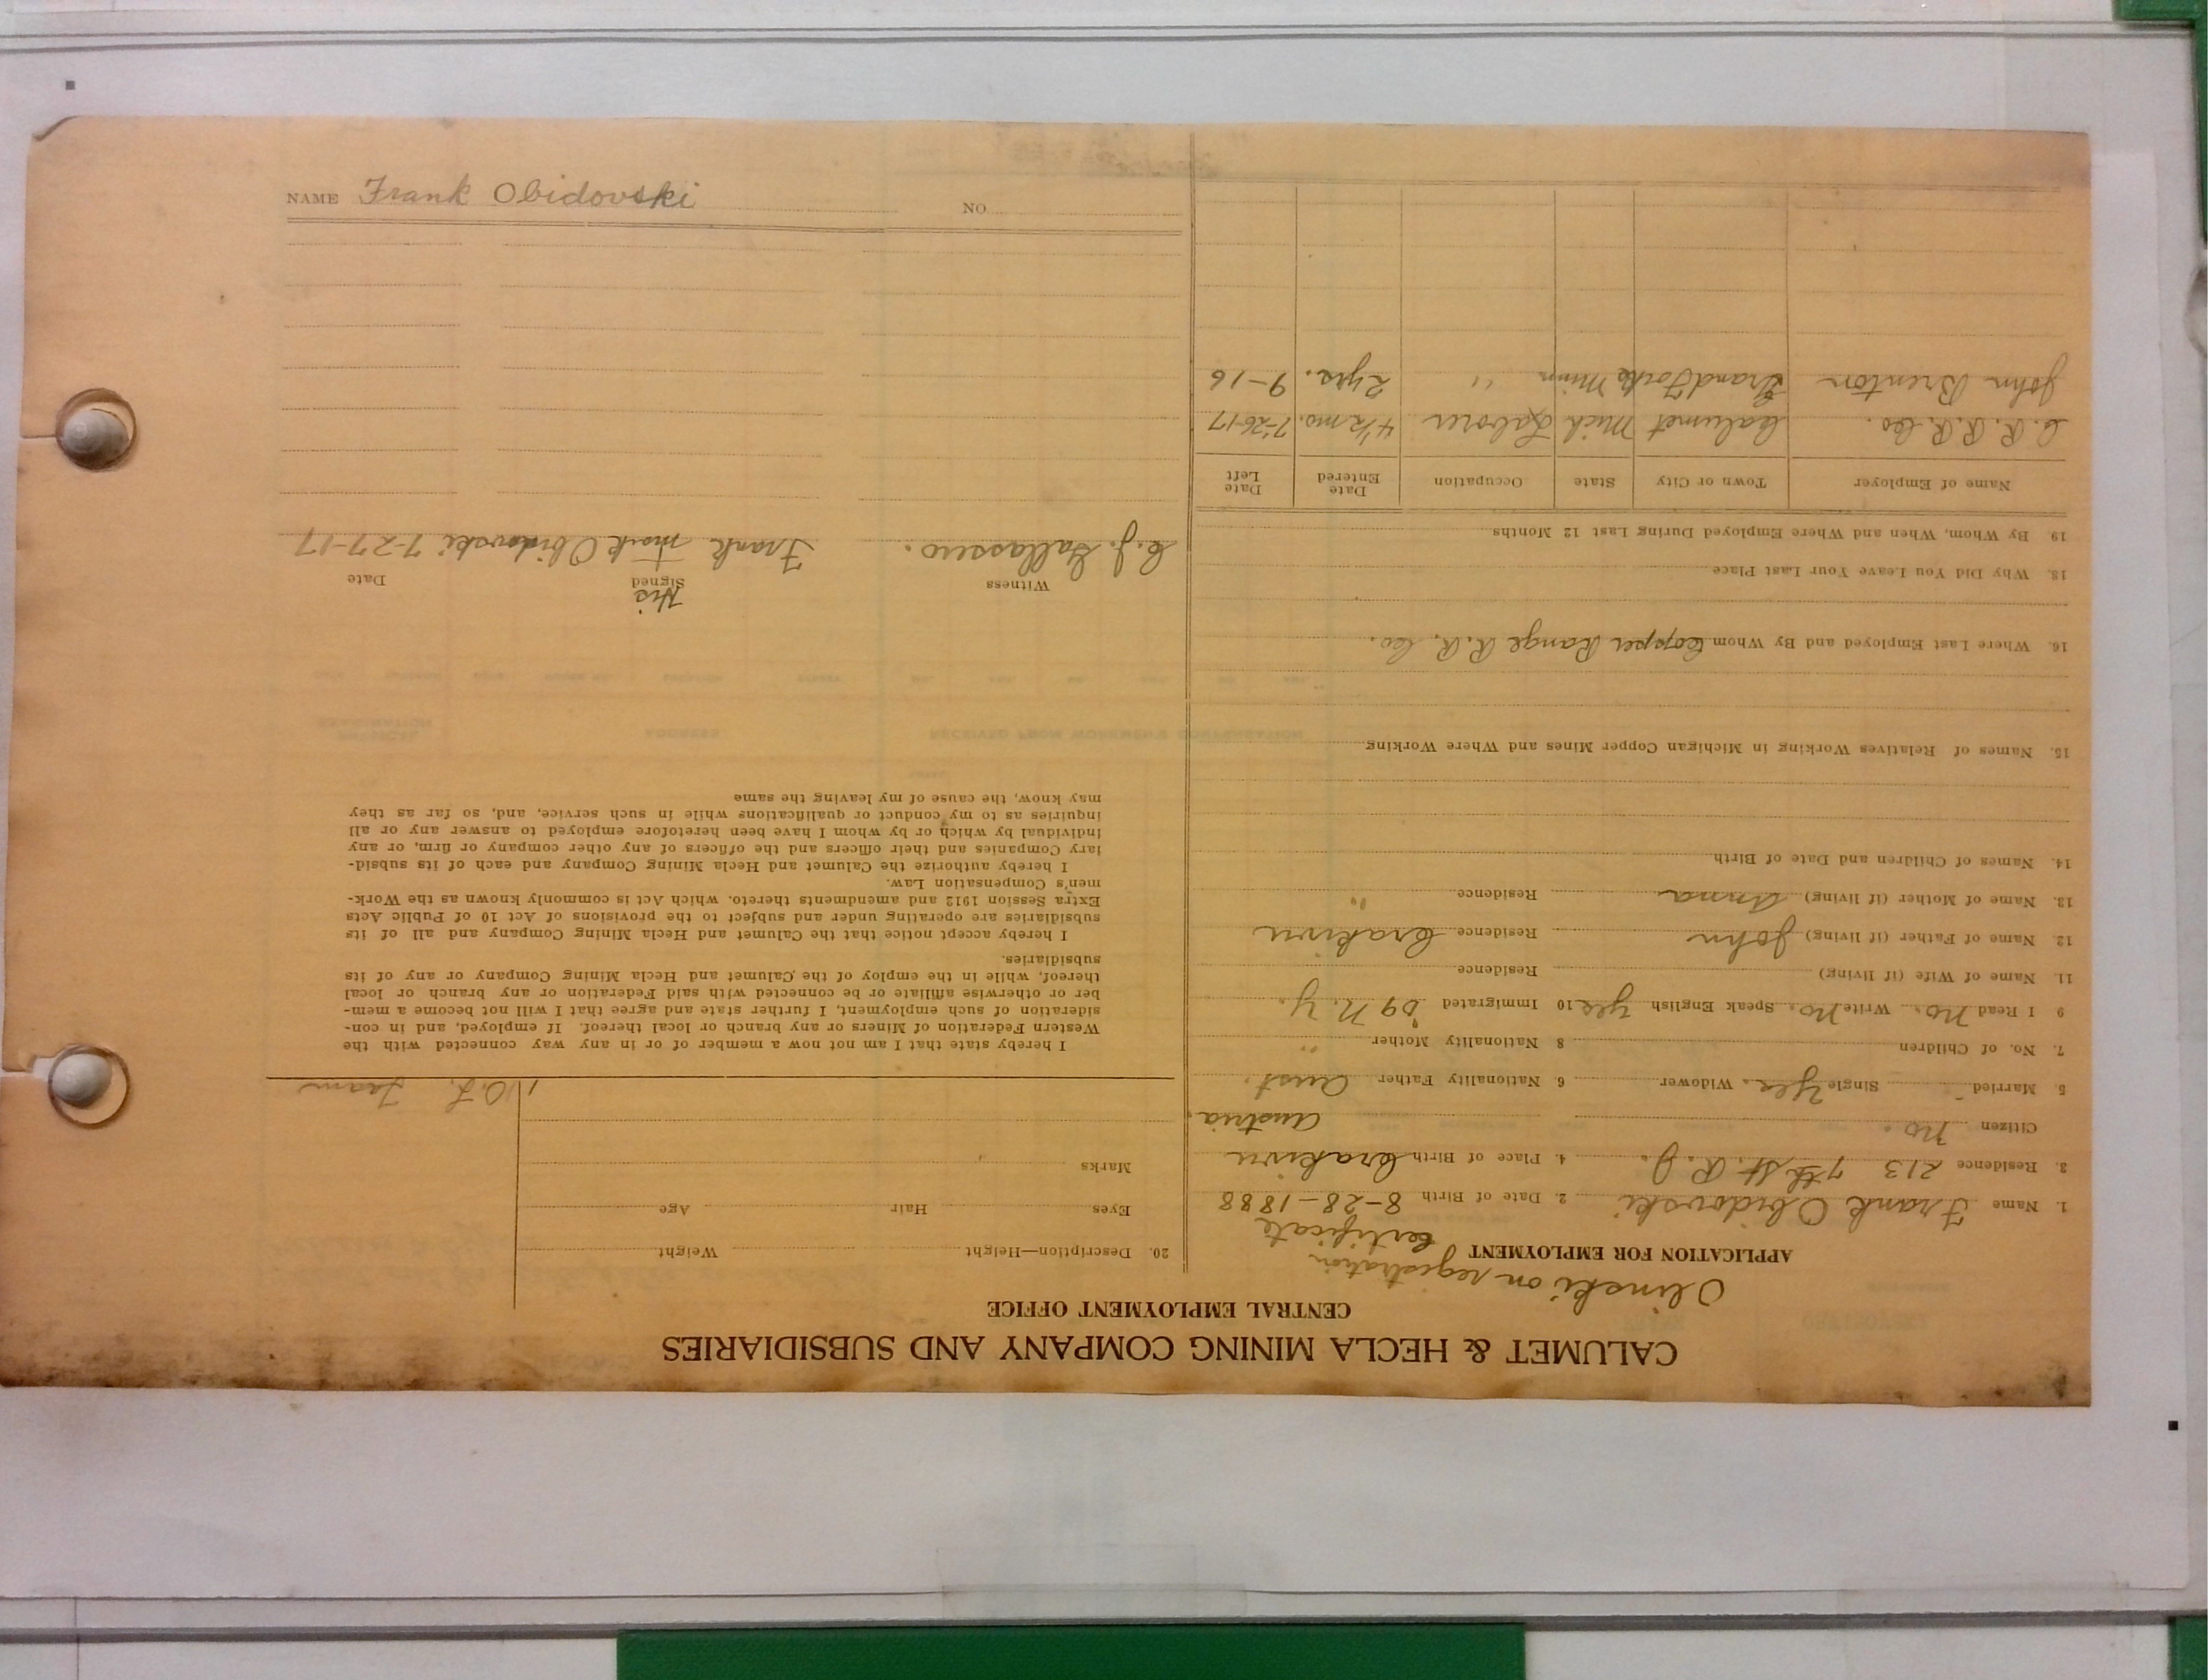 CALUMET & HECLA MINING COMPANY AND SUBSIDIARIES
CENTRAL EMPLOYMENT OFFICE
Olinski on registration
certificate
APPLICATION FOR EMPLOYMENT
1. Name Frank Obidovski 2. Date of Birth 8-28-1888
3. Residence 213 7th St. R. J. 4. Place of Birth Crakivu
Citizen No. Austria
5 Married Single Yes. Widower 6. Nationality Father Aust.
7. No. of Children 8 Nationality Mother "
9 I Read No. Write No. Speak English Yes 10 Immigrated '09 N. Y.
11. Name of Wife (if living) Residence
12. Name of Father (if living) John Residence Crakivu
13. Name of Mother (if living) Anna Residence "
14. Names of Children and Date of Birth
15. Names of Relatives Working in Michigan Copper Mines and Where Working
16. Where Last Employed and By Whom Copper Range R. R. Co.
18. Why Did You Leave Your Last Place
19. By Whom, When and Where Employed During Last 12 Months
Name of Employer Town or City State Occupation Date Entered Date Left
C. R. R. R. Co. Calumet Mich Laborer 4 1/2 mo. 7-26-17
John Brenton Grand Forks Minn " 2 yrs. 9-16
20. Description—Height Weight
Eyes Hair Age
Marks
I hereby state that I am not now a member of or in any way connected with the
Western Federation of Miners or any branch or local thereof. If employed, and in con-
sideration of such employment, I further state and agree that I will not become a mem-
ber or otherwise affiliate or be connected with said Federation or any branch or local
thereof, while in the employ of the Calumet and Hecla Mining Company or any of its
subsidiaries.
I hereby accept notice that the Calumet and Hecla Mining Company and all of its
subsidiaries are operating under and subject to the provisions of Act 10 of Public Acts
Extra Session 1912 and amendments thereto. which Act is commonly known as the Work-
men's Compensation Law.
I hereby authorize the Calumet and Hecla Mining Company and each of its subsid-
iary Companies and their officers and the officers of any other company or firm, or any
individual by which or by whom I have been heretofore employed to answer any or all
inquiries as to my conduct or qualifications while in such service, and, so far as they
may know, the cause of my leaving the same
Witness Signed Date
His
C. J. Gallasero. Frank + mark Obidovski 7-27-17
NAME Frank Obidovski NO